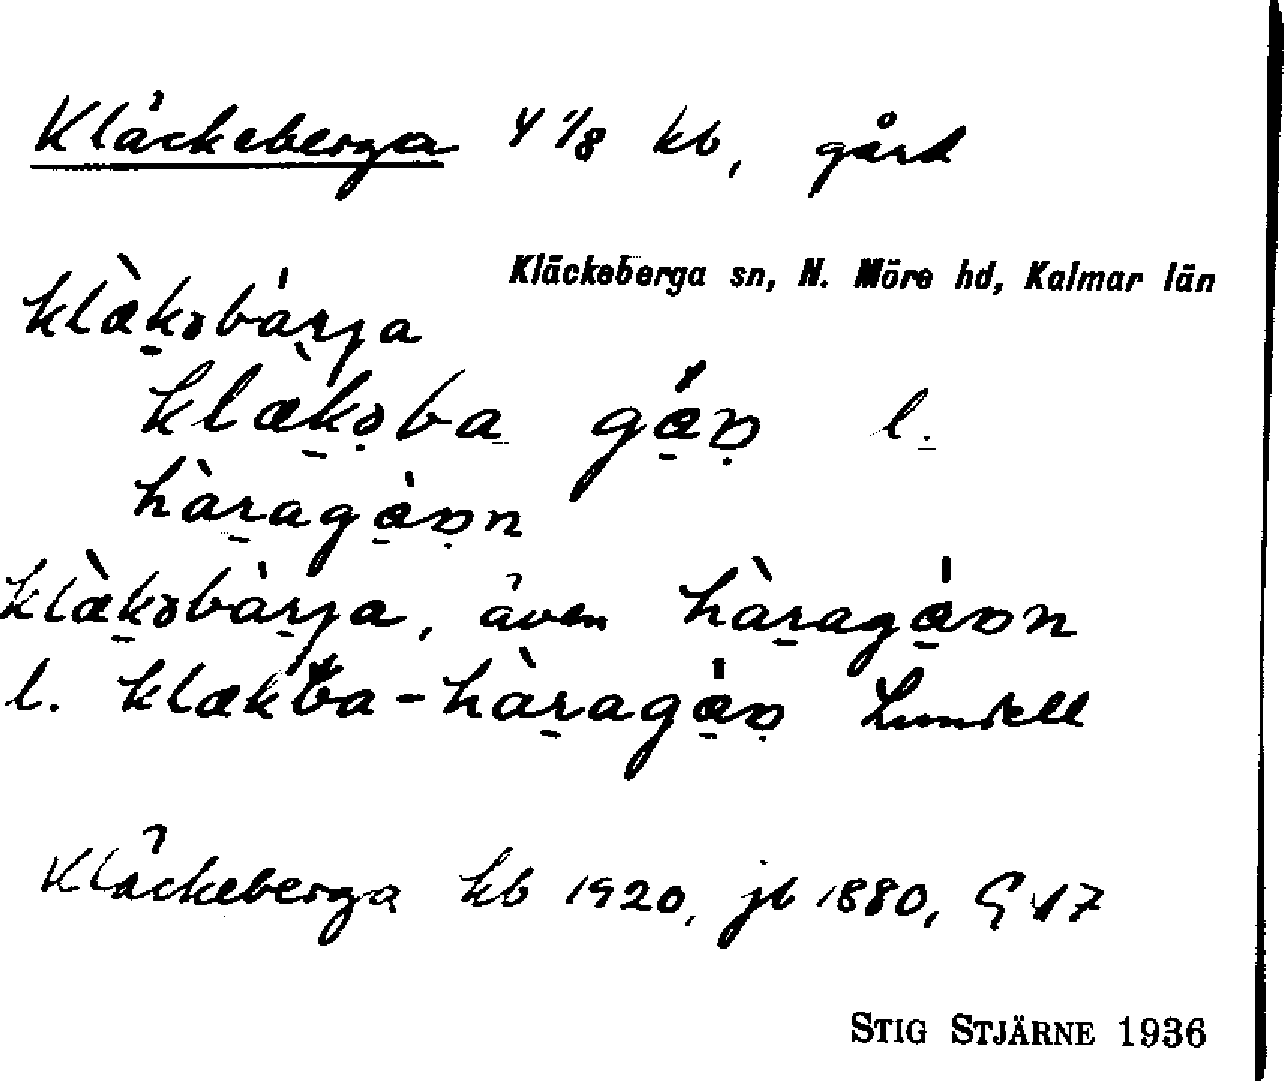 Kläckeberga 4 1/8 kb, gård
Kläckeberga sn, N. Möre hd, Kalmar län
klæ̀kəbàrja
klæ̀kəba gɑ́ɷ l.
hæ̀ragɑ̀ɷn
klæ̀kəbàrja, även hæ̀ragɑ̀ɷn
l. klækba-hàragɑ̀ɷ Lundell
Kläckeberga kb 1920, jb 1880, G 47
STIG STJÄRNE 1936